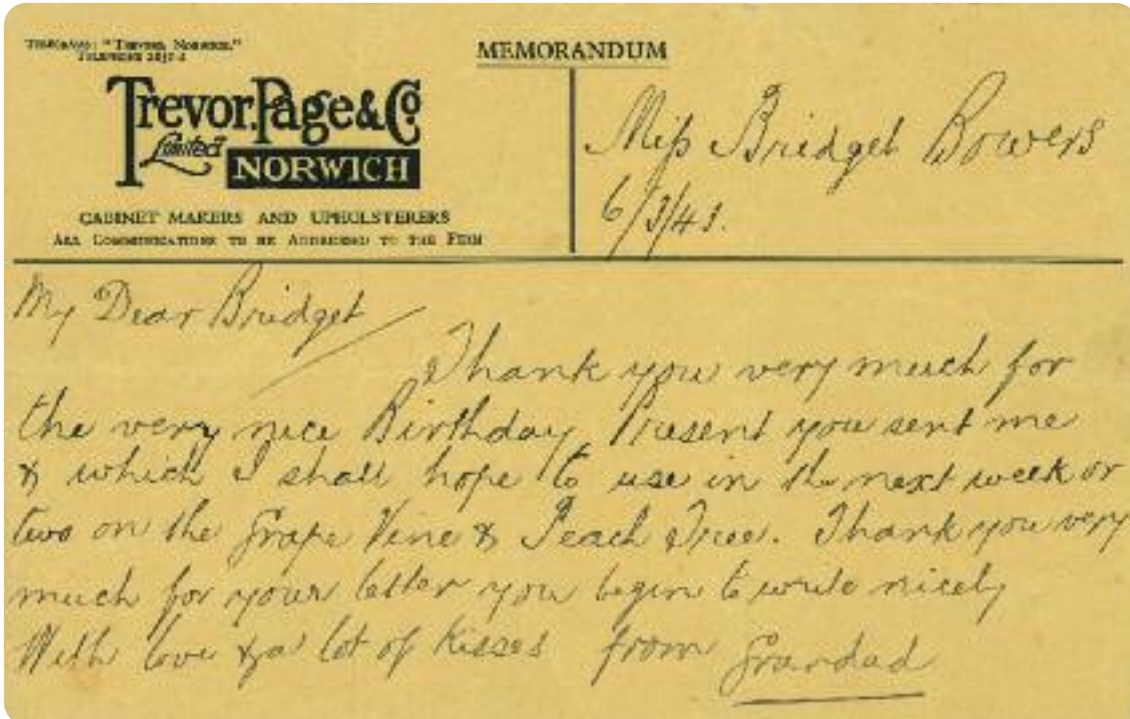 TELEGRAMS: "TREVORS, NORWICH."
TELEPHONE
MEMORANDUM
Trevor, Page & Co
Limited
NORWICH
CABINET MAKERS AND UPHOLSTERERS
ALL COMMUNICATIONS TO BE ADDRESSED TO THE FIRM
Miss Bridget Bowers
6/3/43.
My Dear Bridget
Thank you very much for
the very nice Birthday Present you sent me
& which I shall hope to use in the next week or
two on the Grape Vine & Peach Tree. Thank you very
much for your letter you begin to write nicely
With love & a lot of kisses from Grandad